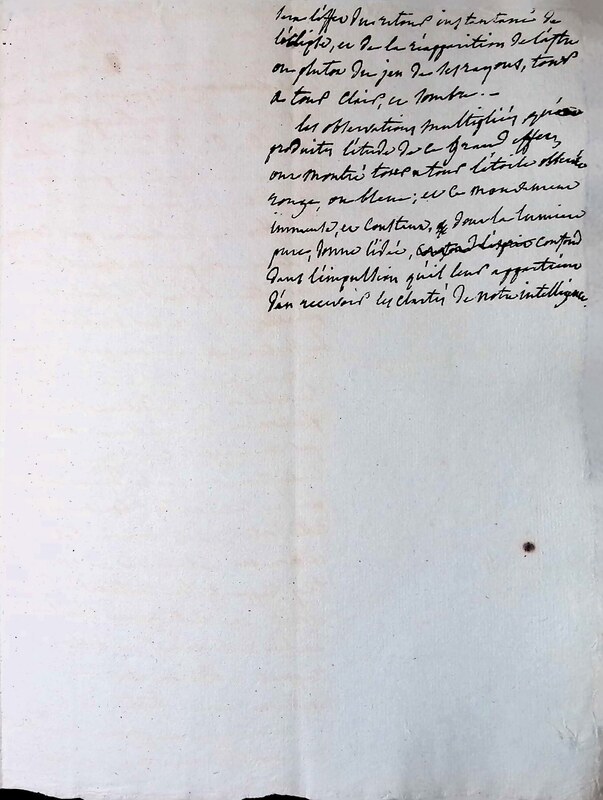 sera l'effet du retour instantané de
l'éclipse, et de la réapparition de l'astre
ou plutot du jeu de ses rayons, tour
a tour clair, et sombre. —
les observations multipliées
produites l'étude de ce Grand effet,
ont montré tour a tour l'étoile
rouge, ou bleue; et ce
immense, et constant, dont la lumiere
pure, donne l'idée, confond
dans l'impulsion qu'il leur appartient
d'en recevoir les clartés de notre intelligence.